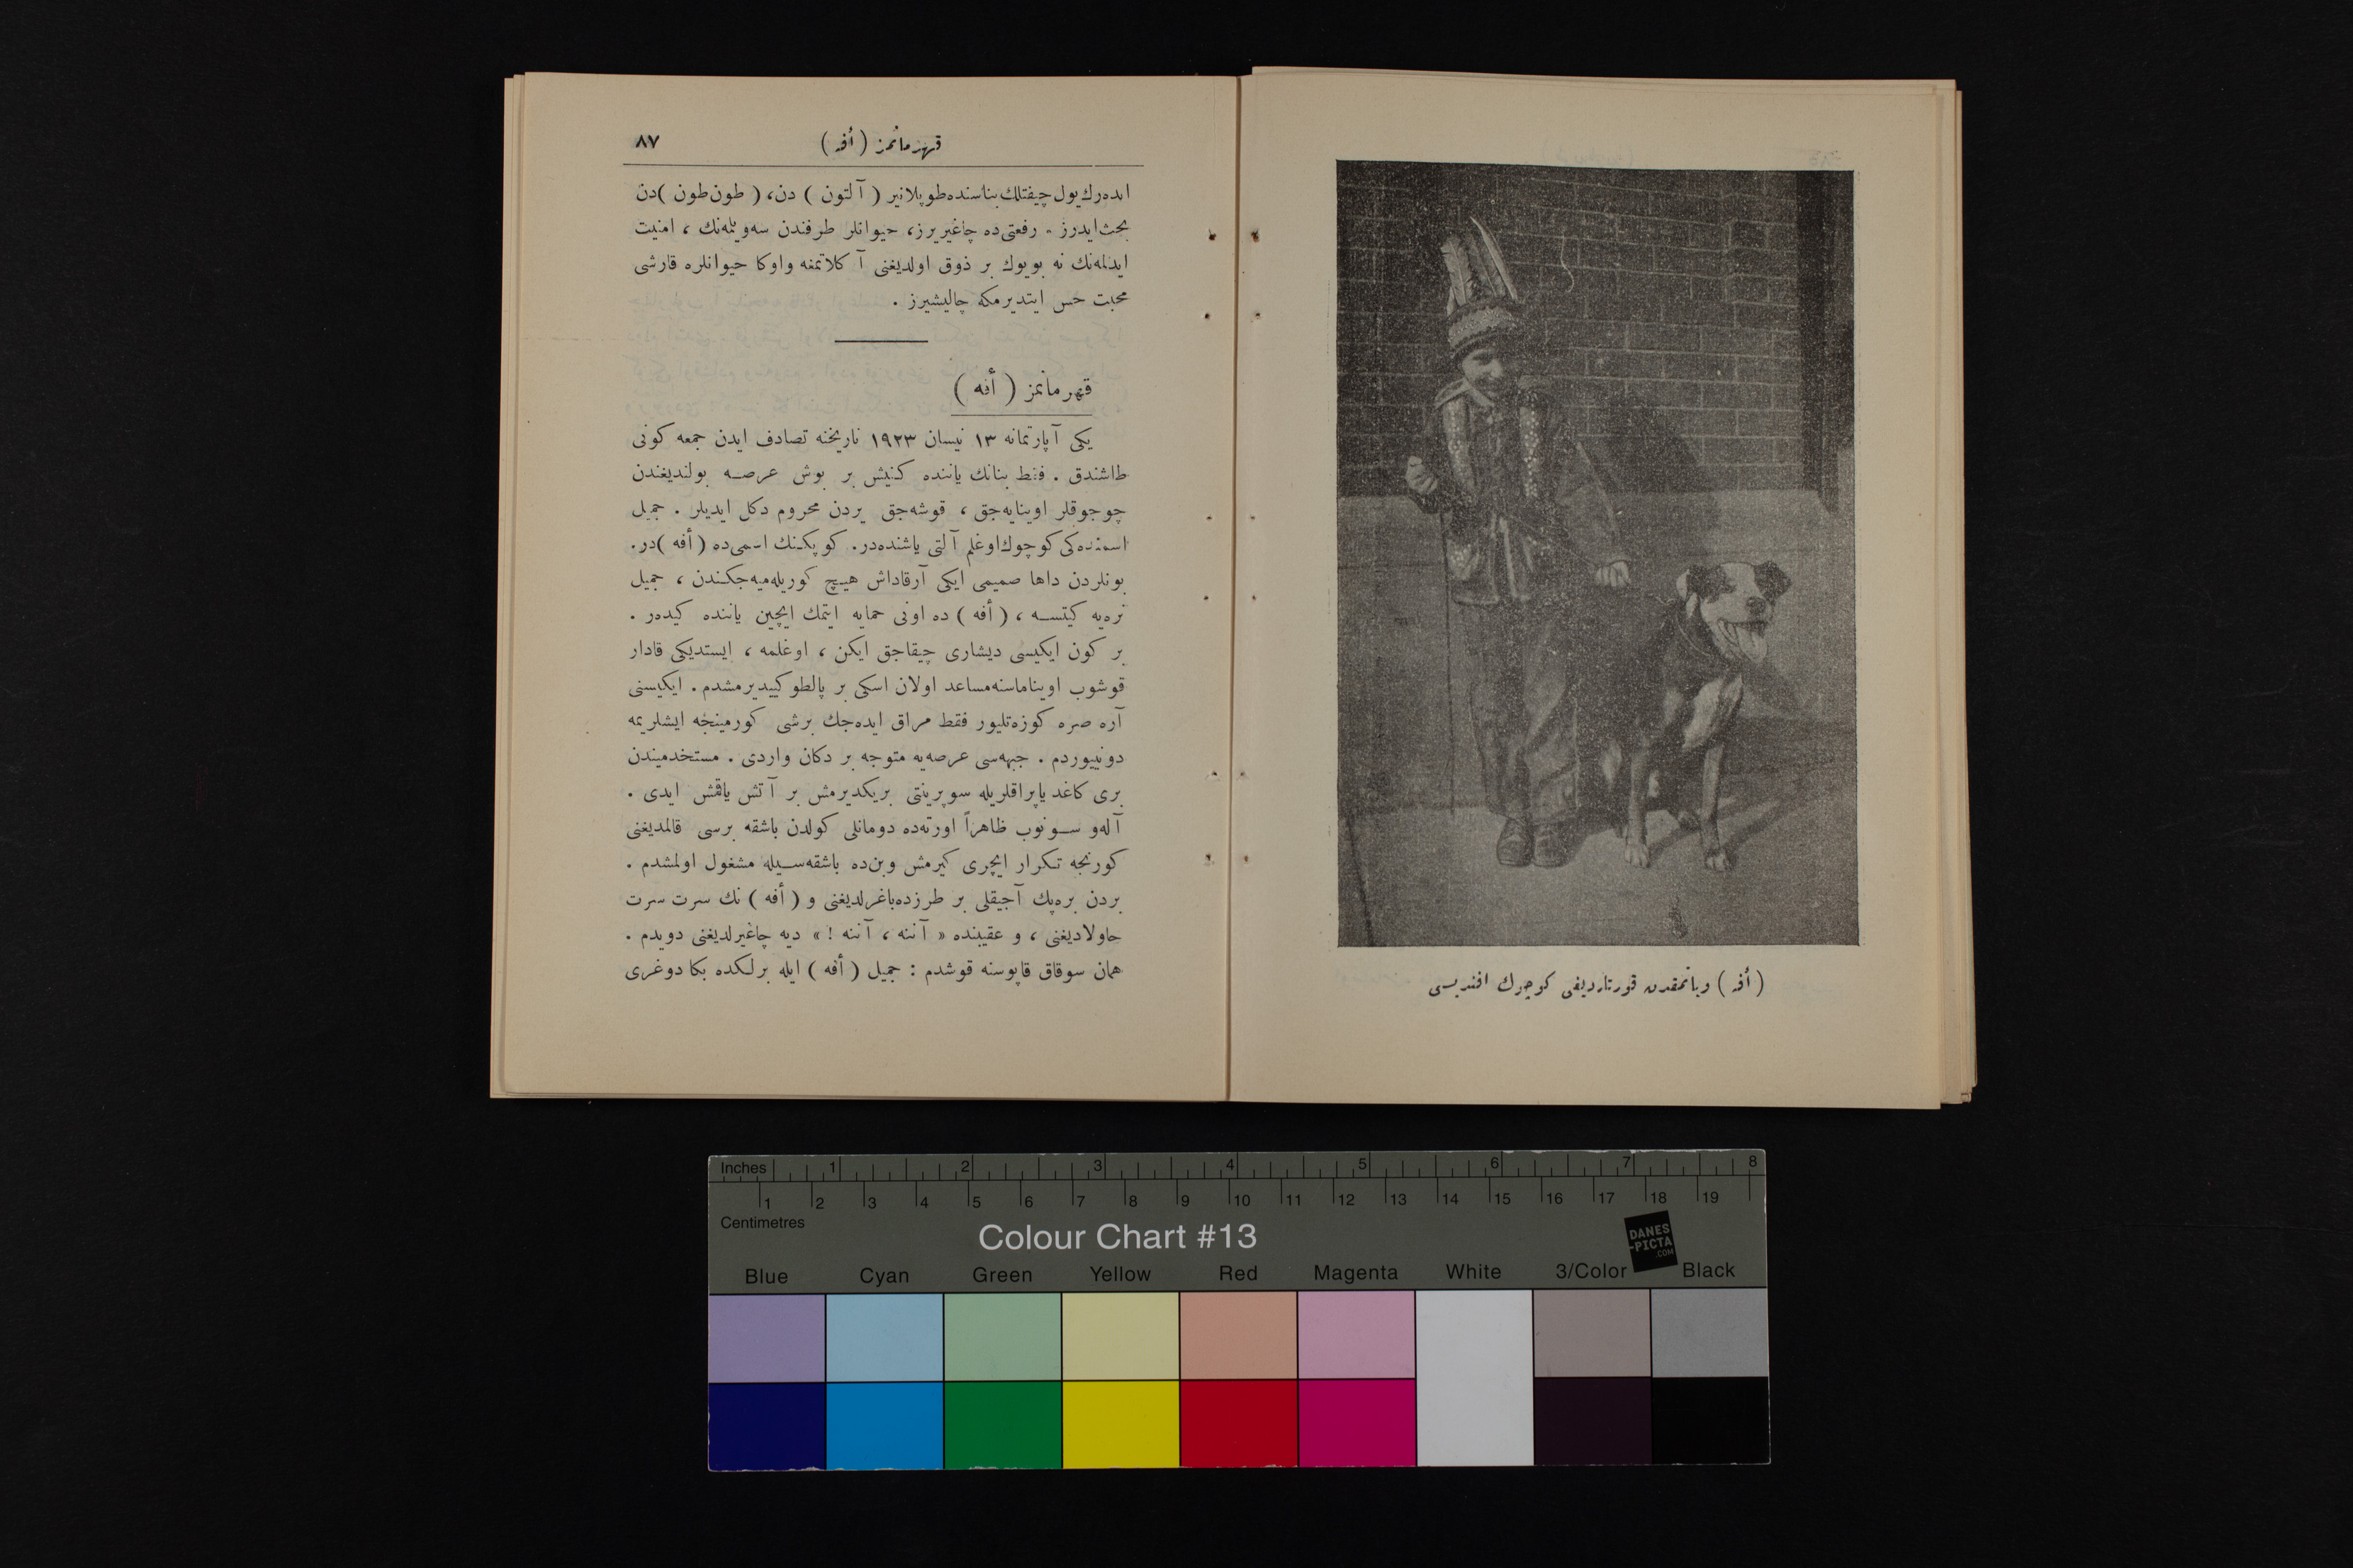 (أفه) ویانمقدن قورتاردیغی کوچوك افندیسی
قهرمانمز (أفه) ٨٧
ایده‌رك یول چیفتلك بناسنده طوپلانیر (آلتون) دن، (طون طون) دن
بحث ایدرز . رفعتی‌ده چاغیریرز، حیوانلر طرفندن سه‌ویلمه‌نك ، امنیت
ایدلمه‌نك نه بویوك بر ذوق اولدیغنی آ كلاتمغه واوكا حیوانلره قارشی
محبت حس ایتدیرمكه چالیشیرز .
قهرمانمز (أفه)
یكی آپارتمانه ١٣ نیسان ١٩٢٣ تاریخنه تصادف ایدن جمعه كونی
طاشندق . فقط بنانك یاننده كنیش بر بوش عرصه بولندیغندن
چوجوقلر اوینایه‌جق ، قوشه‌جق یردن محروم دكل ایدیلر . جمیل
اسمنده‌كی كوچوك اوغلم آلتی یاشنده‌در. كوپكنك اسمی‌ده (أفه) در.
بونلردن داها صمیمی ایكی آرقاداش هیچ كوریله‌میه‌جكندن ، جمیل
نره‌یه كیتسه ، (أفه) ده اونی حمایه ایتمك ایچین یاننده كیدەر .
بر كون ایكیسی دیشاری چیقاجق ایكن ، اوغلمه ، ایستدیكی قادار
قوشوب اویناماسنه مساعد اولان اسكی بر پالطو كییدیرمشدم. ایكیسنی
آره صره كوزه‌تلیور فقط مراق ایده‌جك برشی كورمینجه ایشلریمه
دونییوردم . جبهه‌سی عرصه‌یه متوجه بر دكان واردی . مستخدمیندن
بری كاغد یاپراقلریله سوپرینتی بریكدیرمش بر آتش یاقمش ایدی .
آله‌و سونوب ظاهراً اورته‌ده دومانلی كولدن باشقه برسی قالمدیغنی
كورنجه تكرار ایچری كیرمش وبن‌ده باشقه‌سیله مشغول اولمشدم .
بردن بره‌پك آجیقلی بر طرزده باغرلدیغنی و (أفه) نك سرت سرت
حاولادیغنی ، و عقیبنده « آننه ، آننه ! » دیه چاغیرلدیغنی دویدم .
همان سوقاق قاپوسنه قوشدم : جمیل (أفه) ایله برلكده بكا دوغری
Inches 1 2 3 4 5 6 7 8
1 2 3 4 5 6 7 8 9 10 11 12 13 14 15 16 17 18 19
Centimetres
Colour Chart #13
DANES
-PICTA
.COM
Blue Cyan Green Yellow Red Magenta White 3/Color Black